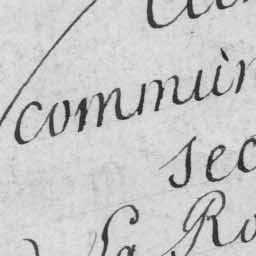 commun
sec
La Ro